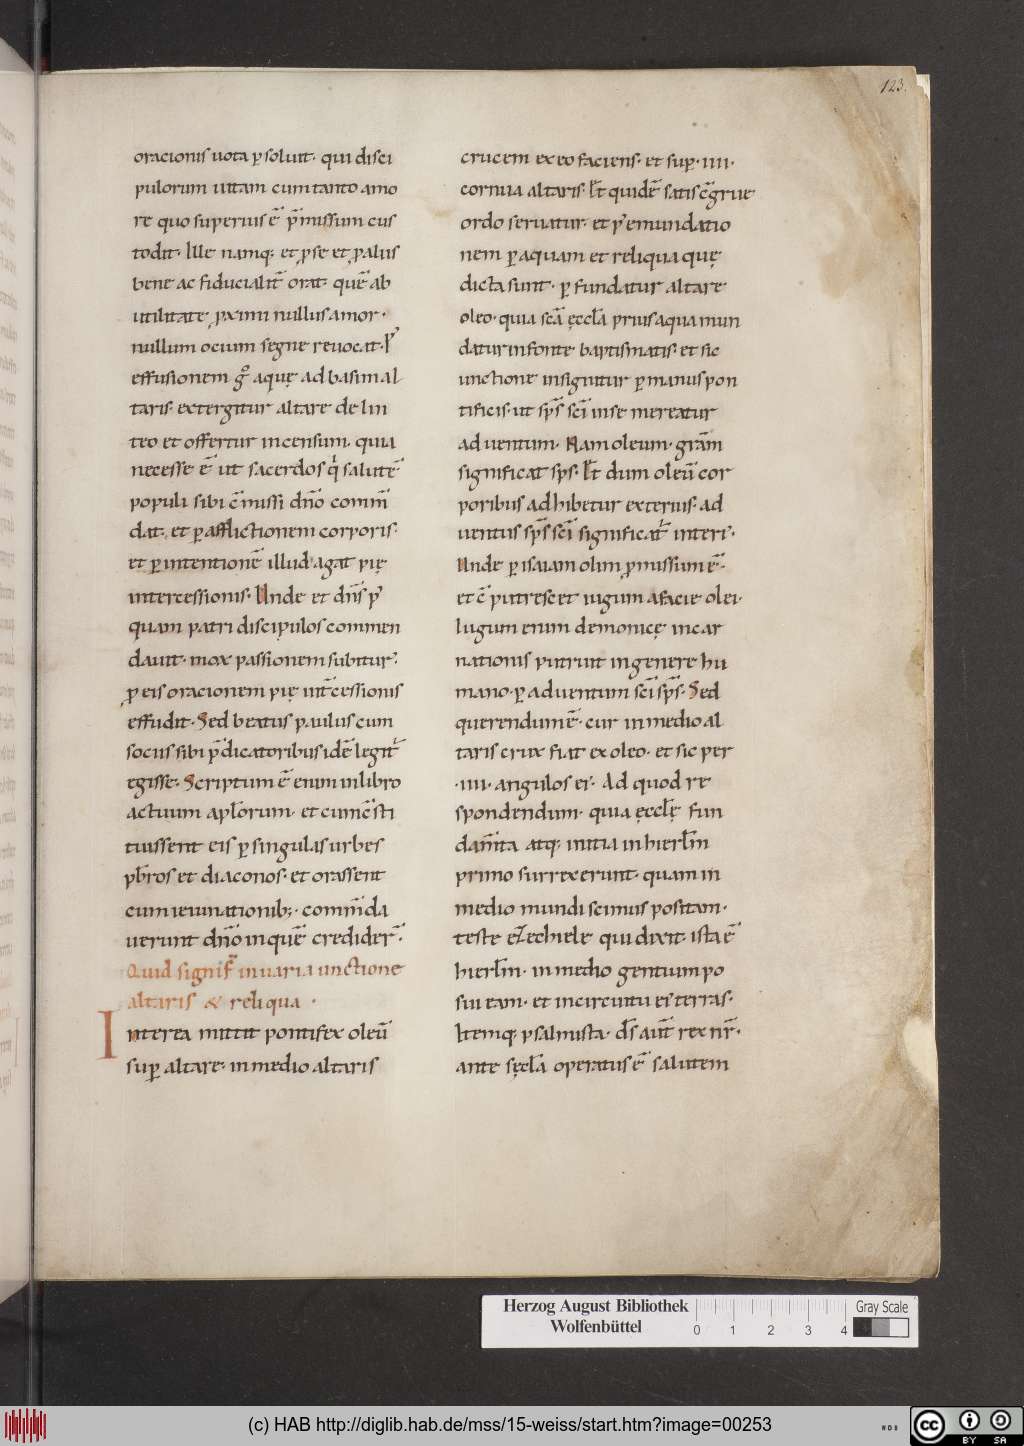 123.
oracionis uota ꝑsoluit· qui disci
pulorum uitam cum tanto amo
re quo superius ē p̄missum cus
todit· Ille namq; et ꝓ se et ꝓ aliis
bene ac fiducialit̄ orat· quē ab
utilitate ꝓximi nullus amor·
nullum ocium segne reuocat· P̓
effusionem gͦ aquę ad basim al
taris· extergitur altare de lin
teo et offertur incensum· quia
necesse ē ut sacerdos qͥ salutē
populi sibi c̄missi dn̄o comm̄
dat· et ꝑ afflictionem corporis·
et ꝑ intentionē illud agat pię
intercessionis· Unde et dn̄s p̓
quam patri discipulos commen
dauit· mox passionem subitur᷑·
ꝓ eis oracionem pię int̄cessionis
effudit· Sed beatus paulus cum
sociis sibi p̄dicatoribus idē legit᷑
egisse· Scriptum ē enim in libro
actuum apl̄orum· et cum c̄sti
tuissent eis ꝑ singulas urbes
pb̄ros et diaconos· et orassent
cum ieiunationib;· comm̄da
uerunt dn̄o in quē credider̄·
Quid signif᷑ in uaria unctione
altaris & reliqua ·
Interea mittit pontifex oleū
suꝑ altare· in medio altaris
crucem ex eo faciens· et suꝑ ·iiii·
cornua altaris· P̓t quidē satis c̄grue
ordo seruatur· et p̓ emundatio
nem ꝑ aquam et reliqua quę
dicta sunt· ꝑfundatur altare
oleo· quia sc̄a ęccl̄a prius aqua mun
datur in fonte baptismatis· et sic
unctione insignitur ꝑ manus pon
tificis· ut sp̄s sc̄i in se mereatur
aduentum· Nam oleum· gr̄am
significat sp̄s· P̓t dum oleū cor
poribus adhibetur exterius· ad
uentus sp̄s sc̄i significat᷑ interi᷒·
Unde ꝑ isaiam olim ꝓmissum ē·
et c̄putrescet iugum a facie olei·
Iugum enim demonicę incar
nationis putruit in genere hu
mano· ꝑ aduentum sc̄i sp̄s· Sed
querendum ē· cur in medio al
taris crux fiat ex oleo· et sic per
·iiii· angulos ei᷒· Ad quod re
spondendum· quia ęccl̄ę fun
dam̄ta atq; initia in hierl̄m
primo surrexerunt· quam in
medio mundi scimus positam·
teste eZechiele qui dixit· ista ē
hierl̄m· in medio gentium po
sui eam· et in circuitu ei᷒ terras·
Itemq; psalmista· ds̄ aut̄ rex nr̄·
ante sęcl̄a operatus ē salutem
Herzog August Bibliothek
Wolfenbüttel
0 1 2 3 4
Gray Scale
(c) HAB http://diglib.hab.de/mss/15-weiss/start.htm?image=00253
cc BY SA